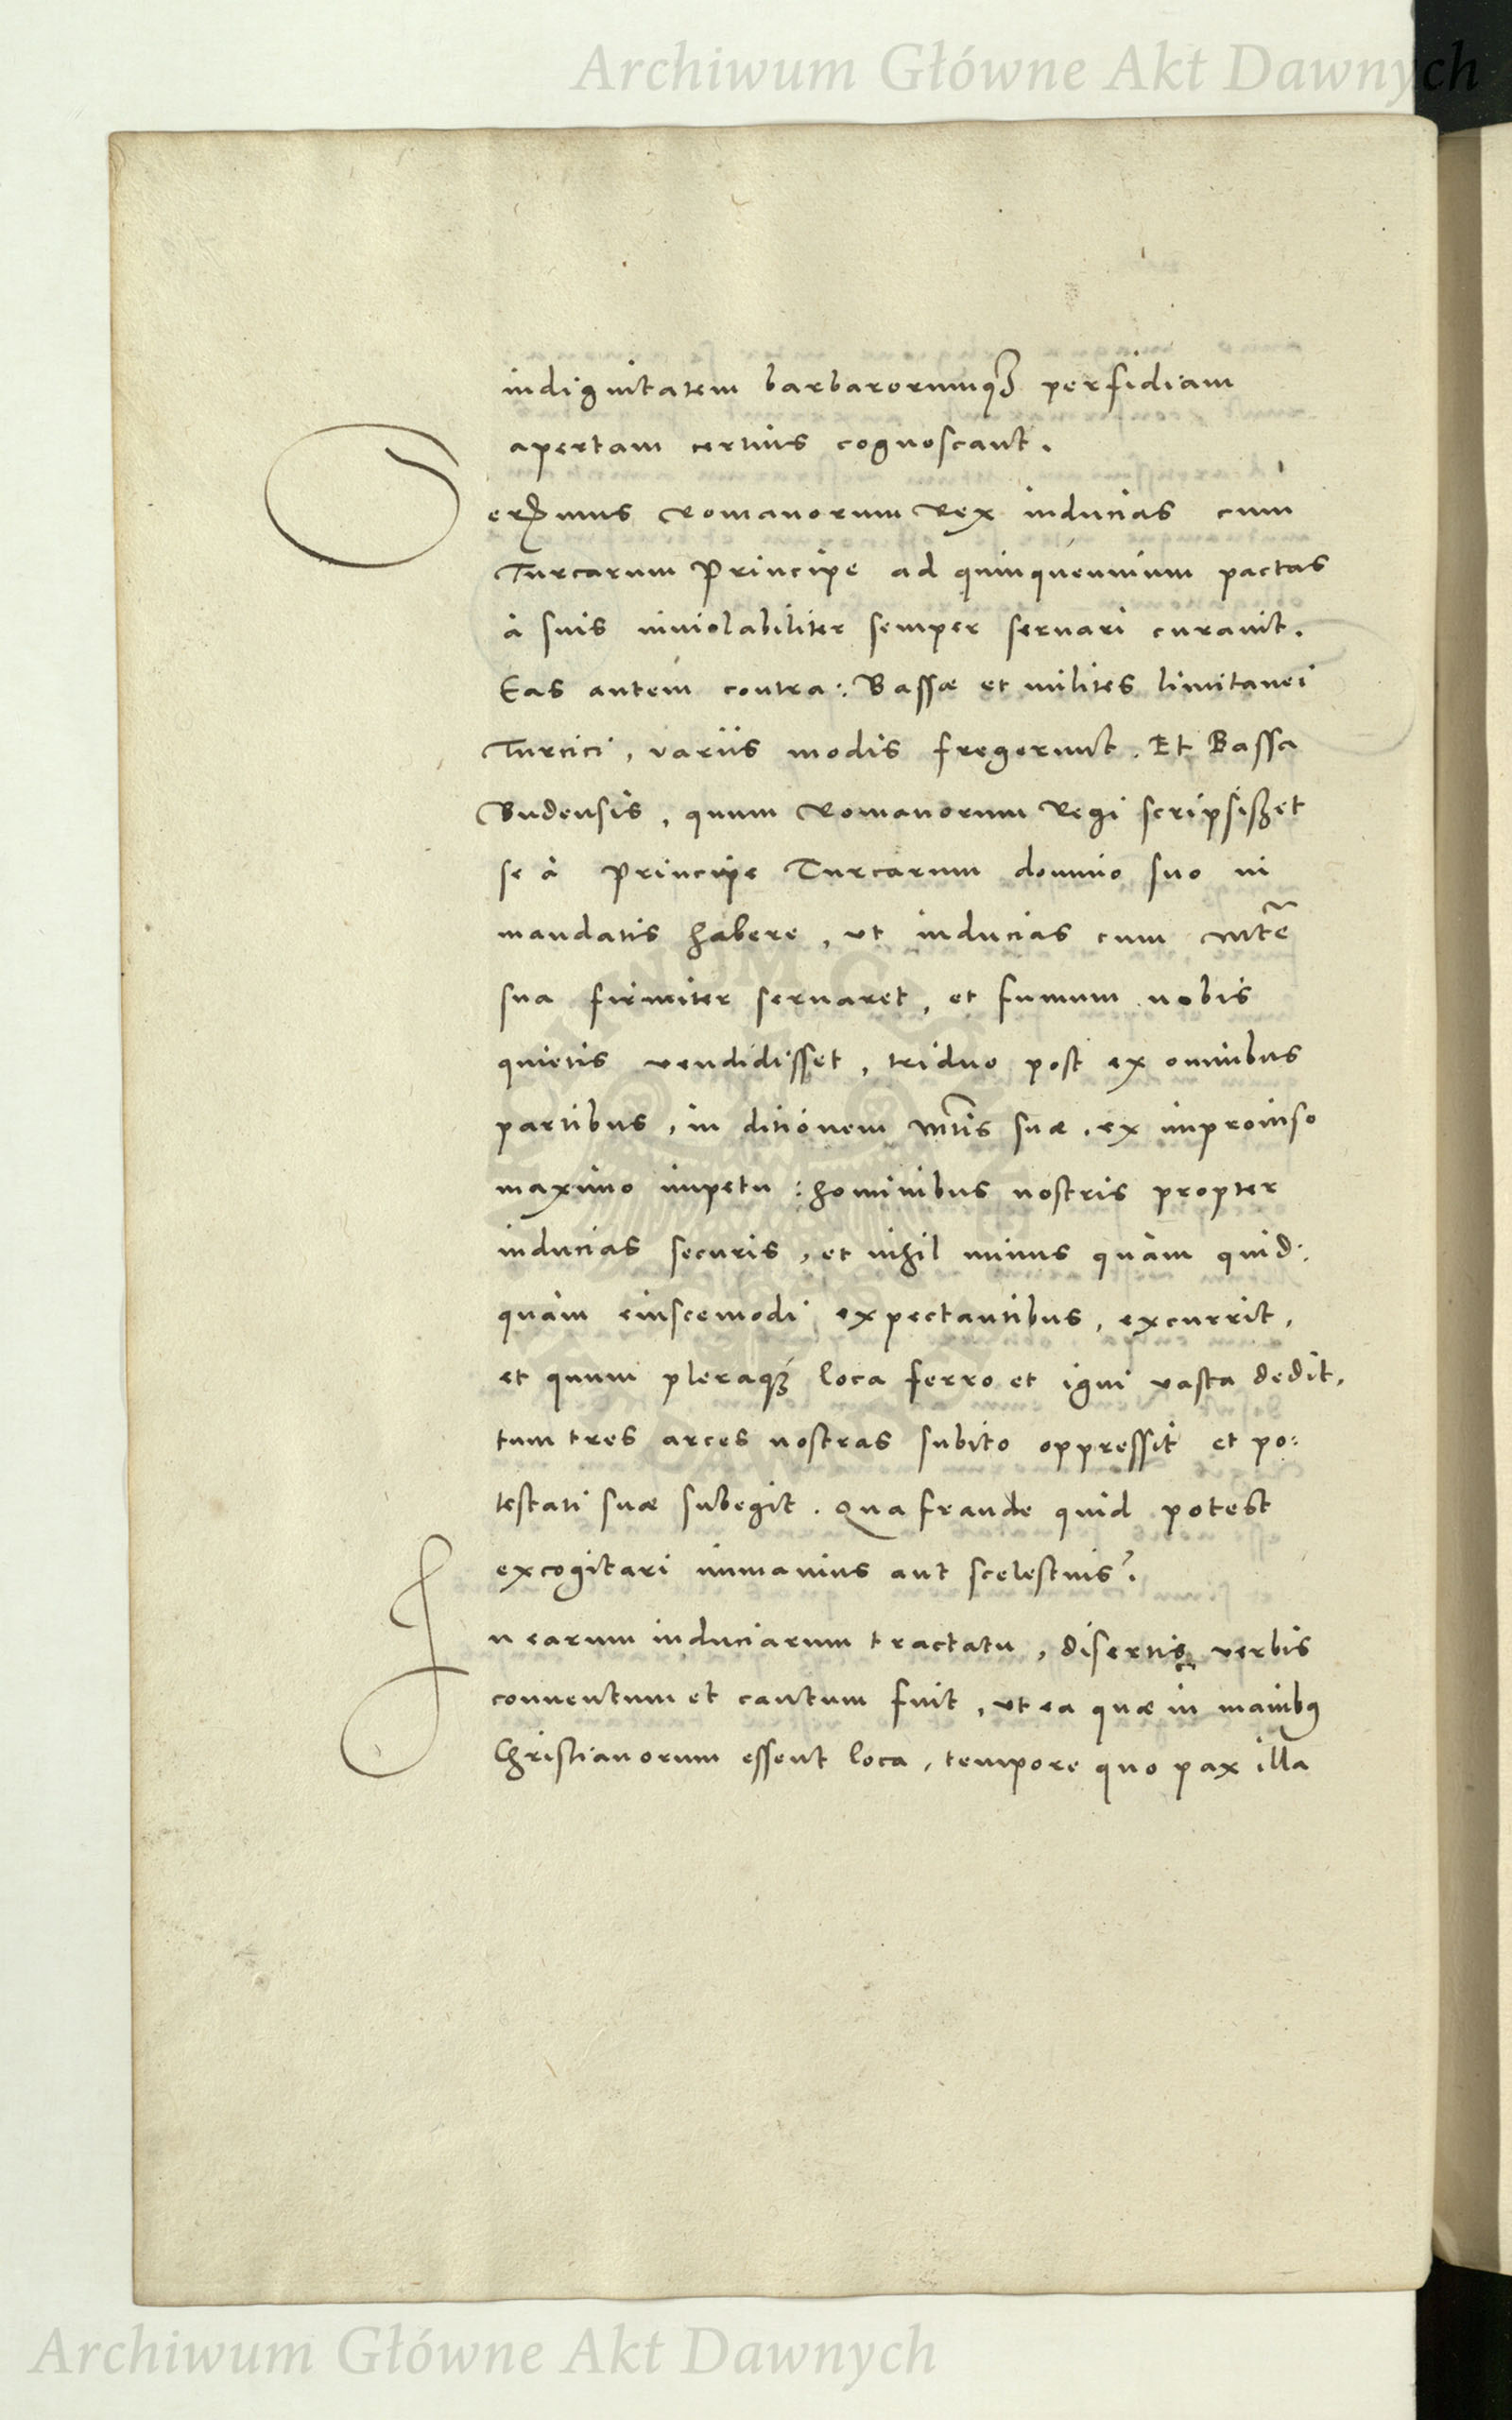 Archiwum Główne Akt Dawnych
indignitatem barbarorumq3 perfidiam
apertam certius cognoscant.
Sermus Romanorum Rex inducias cum
Turcarum Principe ad quinquennium pactas
à suis inviolabiliter semper servari curavit.
Eas autem contra: Bassæ et milites limitanei
Turcici, variis modis fregerunt. Et Bassa
Budensis, quum Romanorum Regi scripsißet
se à Principe Turcarum domino suo in
mandatis habere, ut inducias cum Mte
sua firmiter servaret, et fumum nobis
quietis vendidisset, triduo post ex omnibus
partibus, in ditionem Mtis suæ, ex improviso
maximo impetu: hominibus nostris propter
inducias securis, et nihil minus quàm quid:
quàm eiuscemodi expectantibus, excurrit,
et quum pleraq3 loca ferro et igni vasta dedit,
tum tres arces nostras subito oppressit et po:
testati suæ subegit. Qua fraude quid potest
excogitari inmanius aut scelestius?
In earum induciarum tractatu, disertis verbis
conventum et cautum fuit, ut ea quæ in manibq
Christianorum essent loca, tempore quo pax illa
Archiwum Główne Akt Dawnych